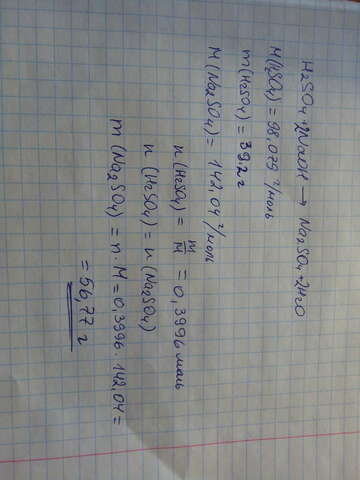 H2SO4 + 2NaOH → Na2SO4 + 2H2O
M(H2SO4) = 98,079 г/моль
m(H2SO4) = 39.2 г
M(Na2SO4) = 142,04 г/моль
n(H2SO4) = m/M = 0,3996 моль
n(H2SO4) = n(Na2SO4)
m(Na2SO4) = n · M = 0,3996 · 142,04 =
= 56,77 г